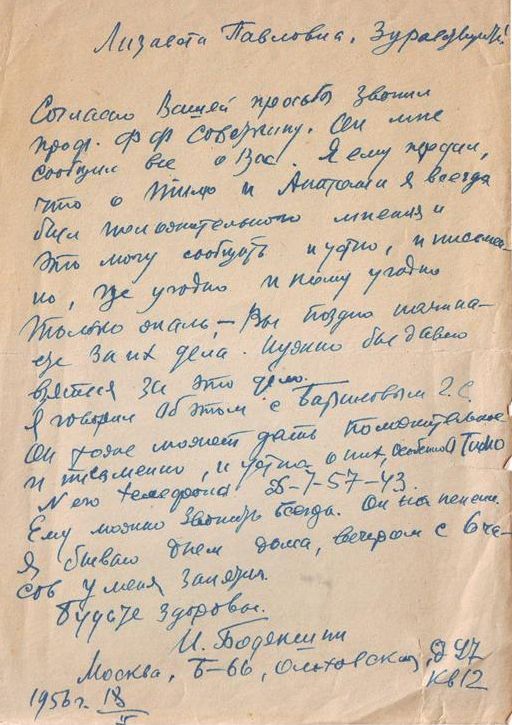 Лизавета Павловна, Здравствуйте!
Согласно Вашей просьбы звонил
проф. Ф Ф Он мне
сообщил все о Вас. Я ему передал,
что о Тилю и Анатолии я всегда
был положительного мнения и
это могу сообщить и устно, и письмен-
но, где угодно и кому угодно
Только жаль, – Вы поздно начина-
ете за их дела. Нужно бы давно
взяться за это дело.
Я говорил об этом с Бариновым
Он тоже может дать положительное
и письменно, и устно о них, особенно о
N его телефона Б-7-57-43.
Ему можно звонить всегда. Он на пенсии.
Я бываю днем дома, вечером с 6 ча-
сов у меня занятия.
Будьте здоровы.
И.
Москва, Б-66, Ольховская, д 97
кв 12
1956 г. 18
V